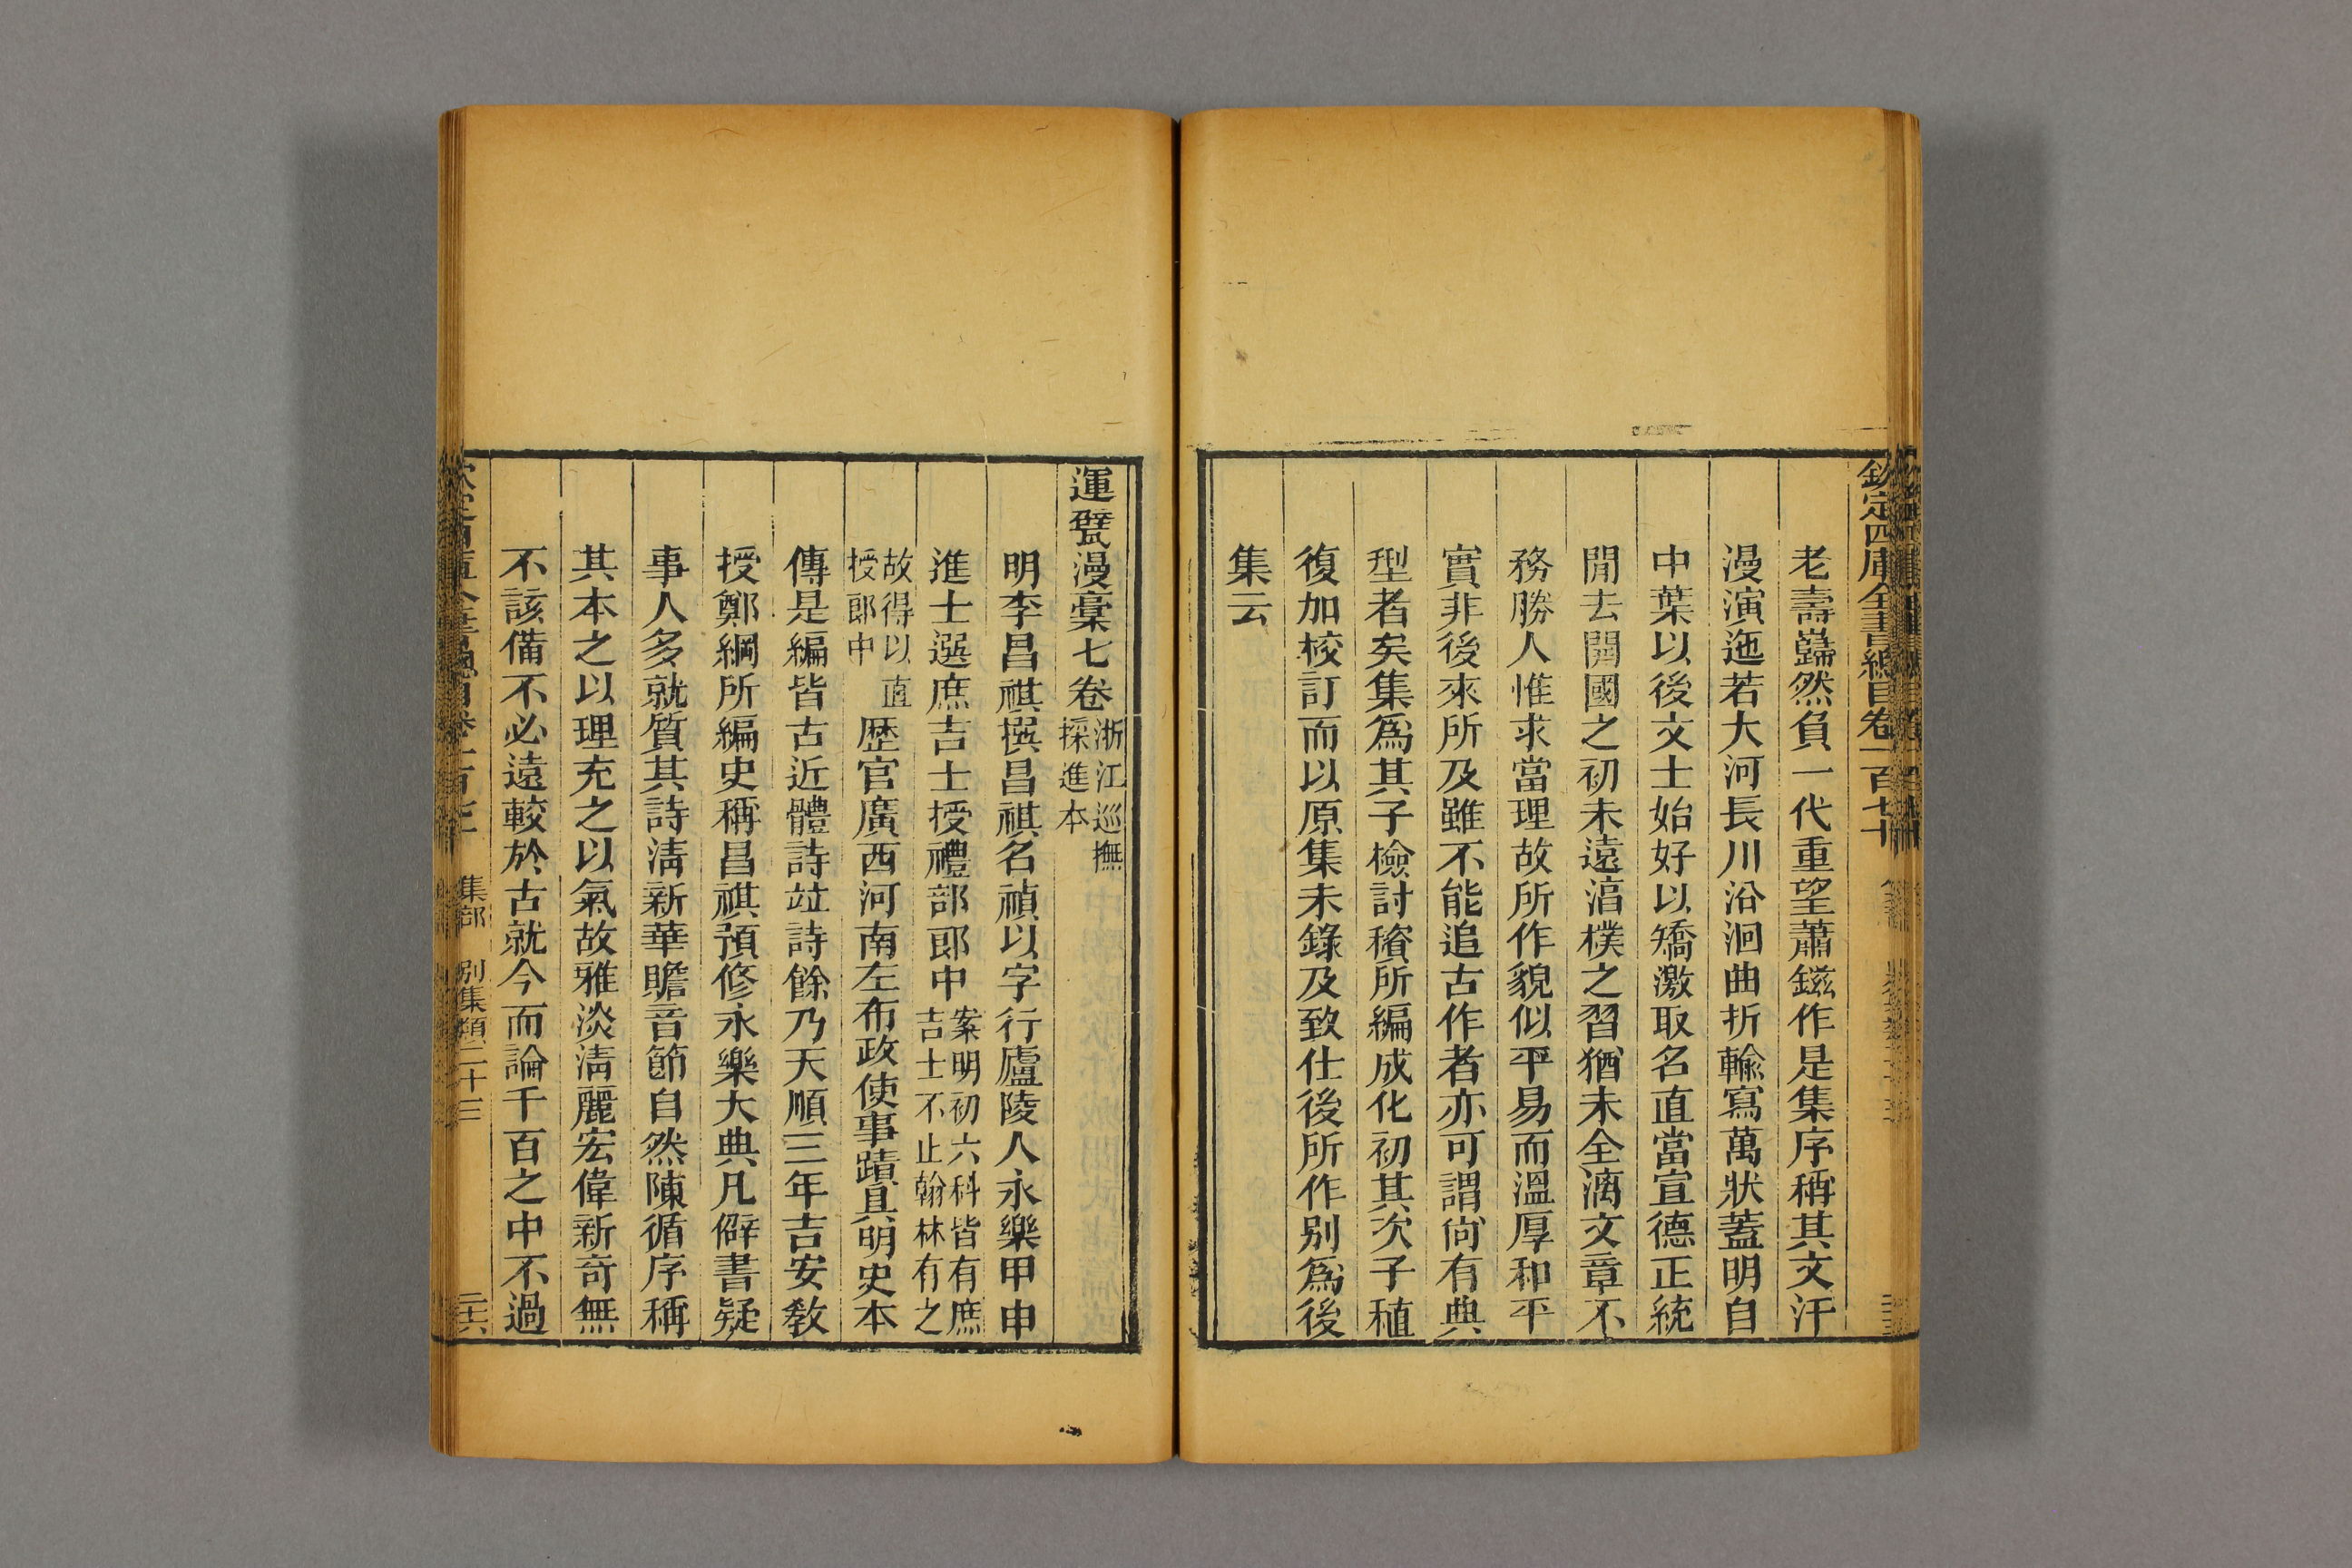 欽定四庫全書總目卷一百七十
老壽巋然負一代重望蕭鎡作是集序稱其文汗
漫演迤若大河長川沿洄曲折輸寫萬狀蓋明自
中葉以後文士始好以矯激取名直當宣德正統
閒去開國之初未遠湻樸之習猶未全漓文章不
務勝人惟求當理故所作貌似平易而溫厚和平
實非後來所及雖不能追古作者亦可謂尙有典
型者矣集爲其子檢討𥡴所編成化初其次子稙
復加校訂而以原集未錄及致仕後所作别爲後
集云
運甓漫稾七卷
浙江巡撫
採進本
明李昌祺撰昌祺名禎以字行廬陵人永樂甲申
進士選庶吉士授禮部郎中
案明初六科皆有庶
吉士不止翰林有之
故得以直
授郎中
歴官廣西河南左布政使事蹟具明史本
傳是編皆古近體詩竝詩餘乃天順三年吉安敎
授鄭綱所編史稱昌祺預修永樂大典凡僻書疑
事人多就質其詩淸新華贍音節自然陳循序稱
其本之以理充之以氣故雅淡淸麗宏偉新奇無
不該備不必遠較於古就今而論千百之中不過
集部 别集類二十三
二十六